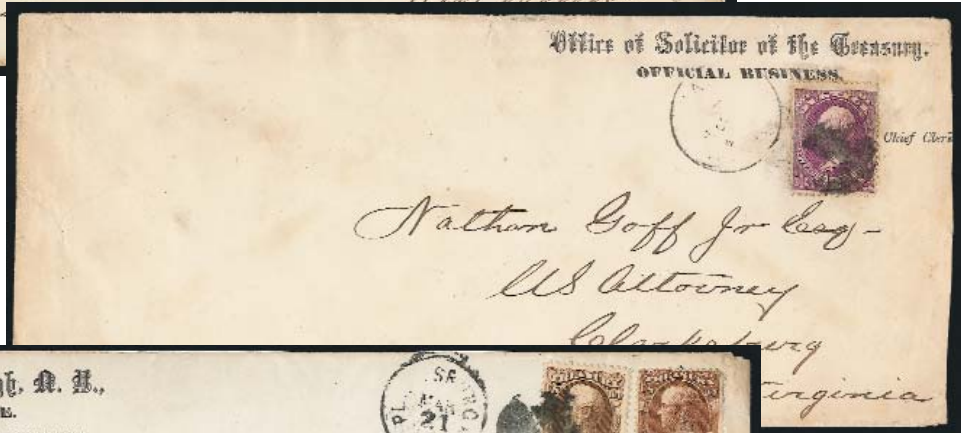 Office of Solicitor of the Treasury.
OFFICIAL BUSINESS.
Chief Cler
Nathan Goff Jr Esq-
US Attorney
Clarksburg
Virginia
gh, N. Y.,
21